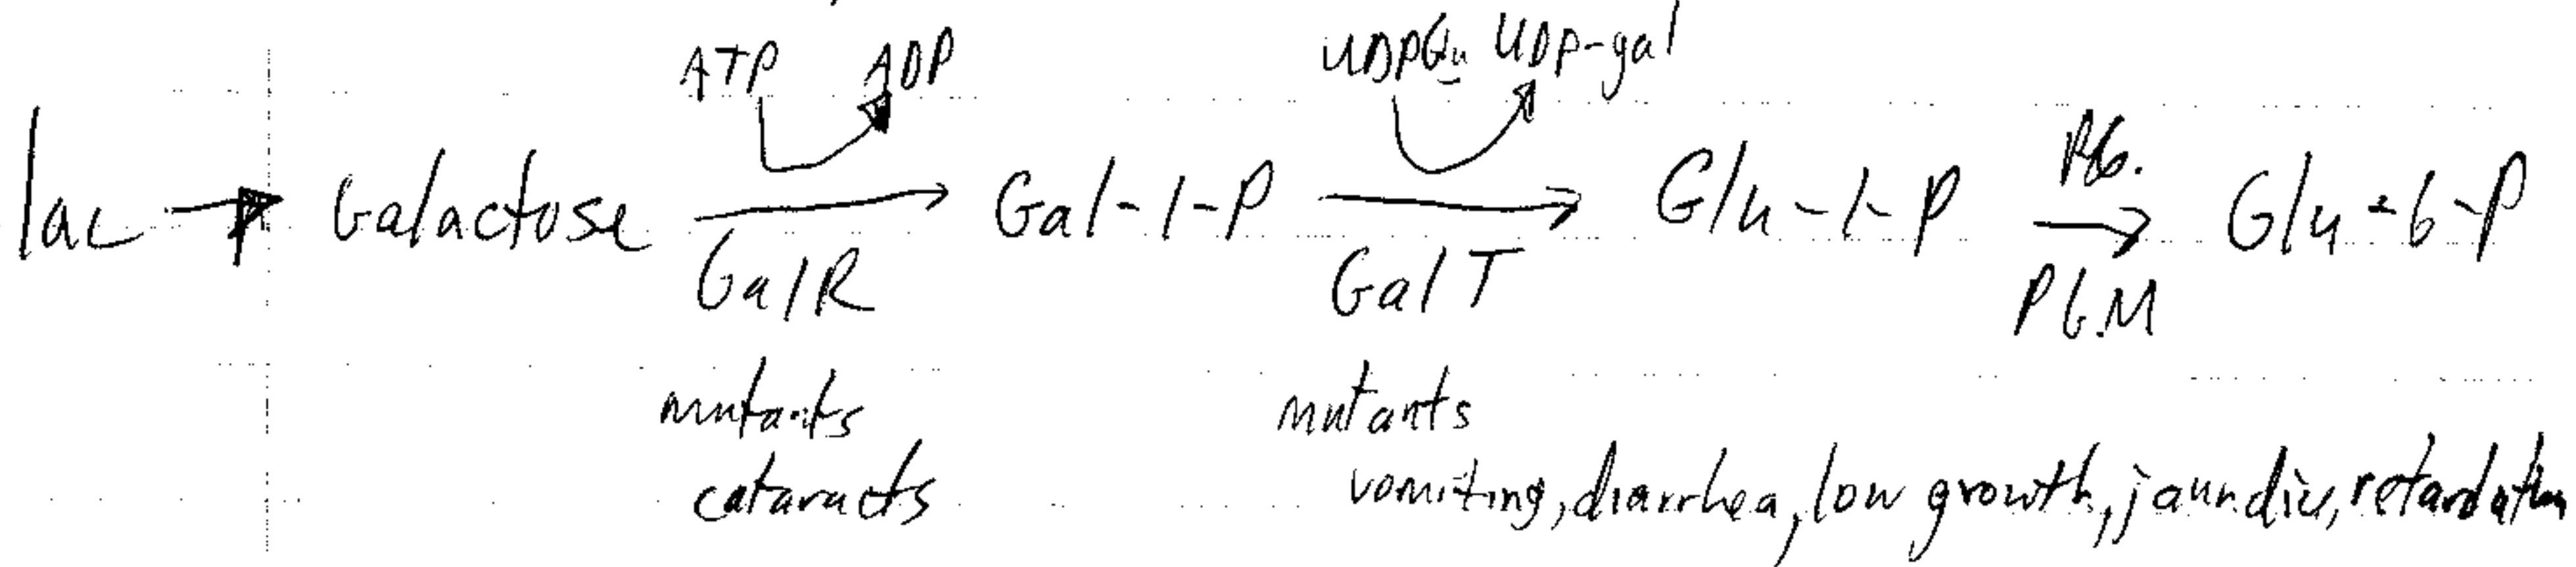 ATP ADP UDPGlu UDP-gal
lac → Galactose → Gal-1-P → Glu-1-P → Glu-6-P
GalR GalT PGM
mutants mutants
cataracts vomiting, diarrhea, low growth, jaundice, retardation